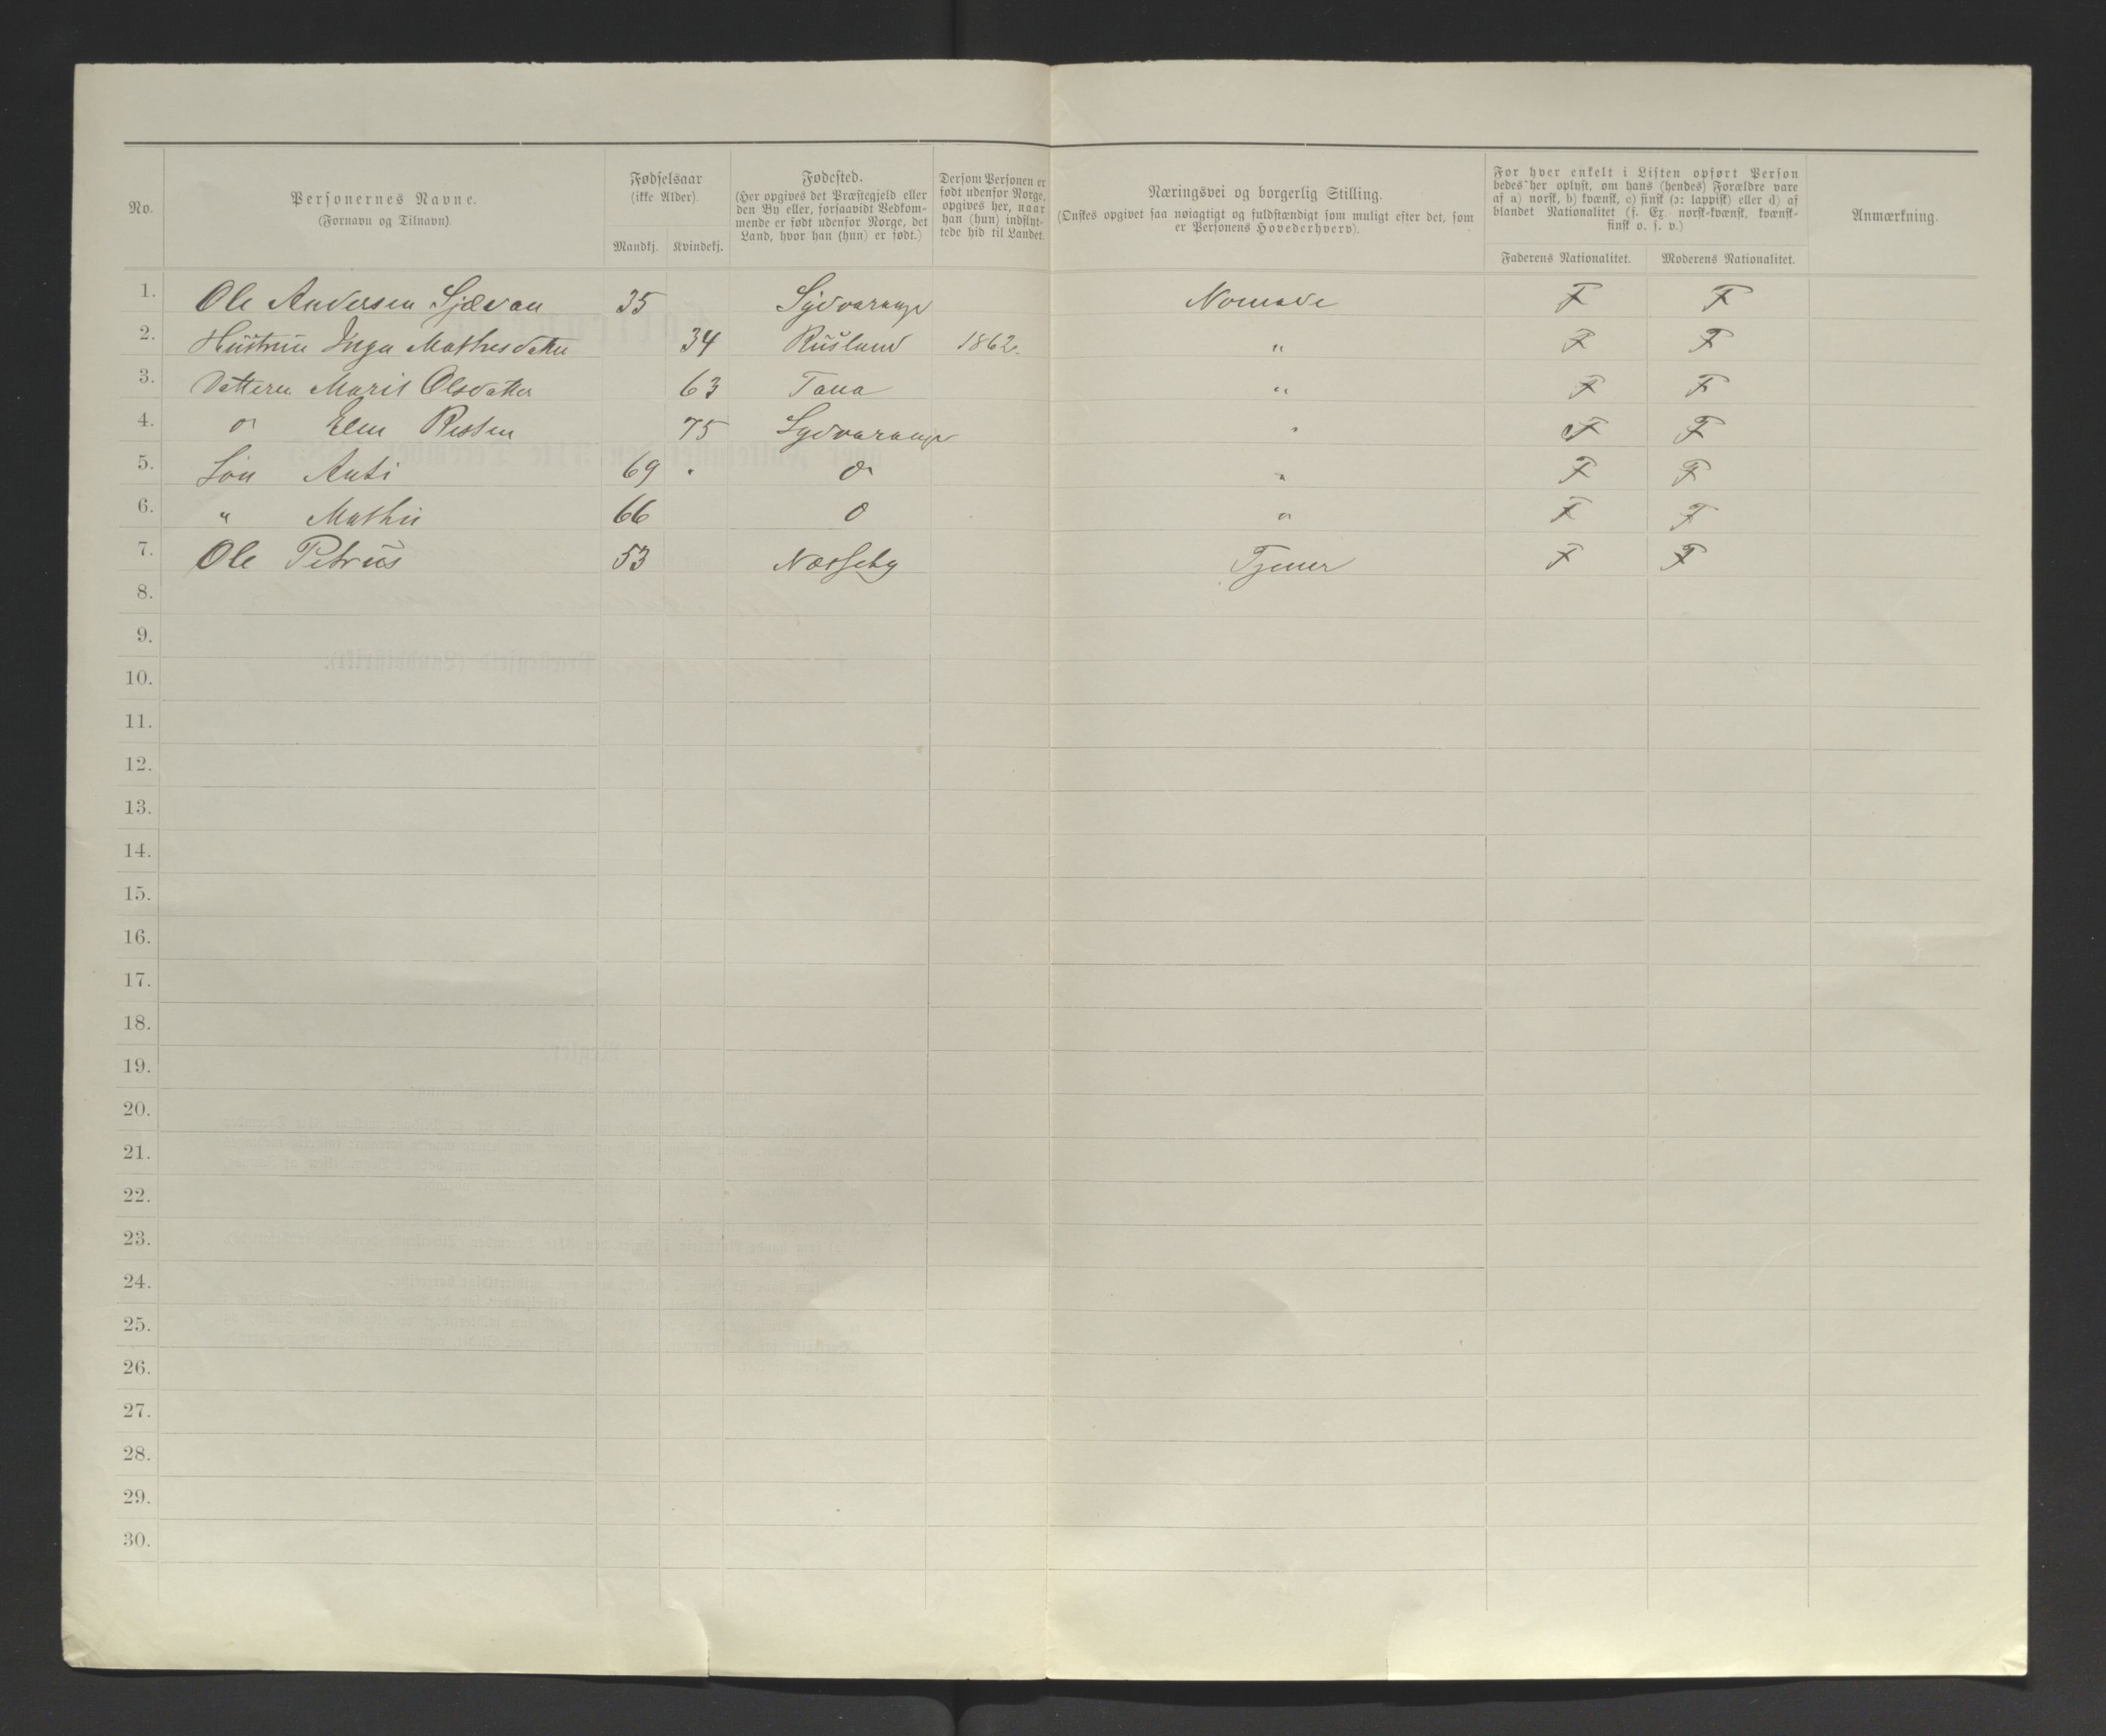 No.
Personernes Navne.
(Fornavn og Tilnavn).
Fødselsaar
(ikke Alder).
Mandkj. Kvindekj.
Fødested.
(Her opgives det Præstegjeld eller
den By eller, forsaavidt Vedkom-
mende er født udenfor Norge, det
Land, hvor han (hun) er født.)
Dersom Personen er
født udenfor Norge,
opgives her, naar
han (hun) indflyt-
tede hid til Landet.
Næringsvei og borgerlig Stilling.
(Ønskes opgivet saa nøiagtigt og fuldstændigt som muligt efter det, som
er Personens Hovederhverv).
For hver enkelt i Listen opført Person
bedes her oplyst, om hans (hendes) Forældre vare
af a) norsk, b) kvænsk, c) finsk (ↄ: lappisk) eller d) af
blandet Nationalitet (f. Ex. norsk-kvænsk, kvænsk-
finsk o. s. v.)
Faderens Nationalitet. Moderens Nationalitet.
Anmærkning.
1. Ole Andersen Sjævan 35 Sydvarange Nomade F F
2. Hustru Inga Mathisdatter 34 Rusland 1862. " F F
3. Datteren Marit Olsdatter 63 Tana " F F
4. " Elen 75 Sydvarange " F F
5. Søn Anti 69 " " F F
6. " Mathis 66 " " F F
7. Ole Petrus 53 Næsseby Tjener F F
8.
9.
10.
11.
12.
13.
14.
15.
16.
17.
18.
19.
20.
21.
22.
23.
24.
25.
26.
27.
28.
29.
30.